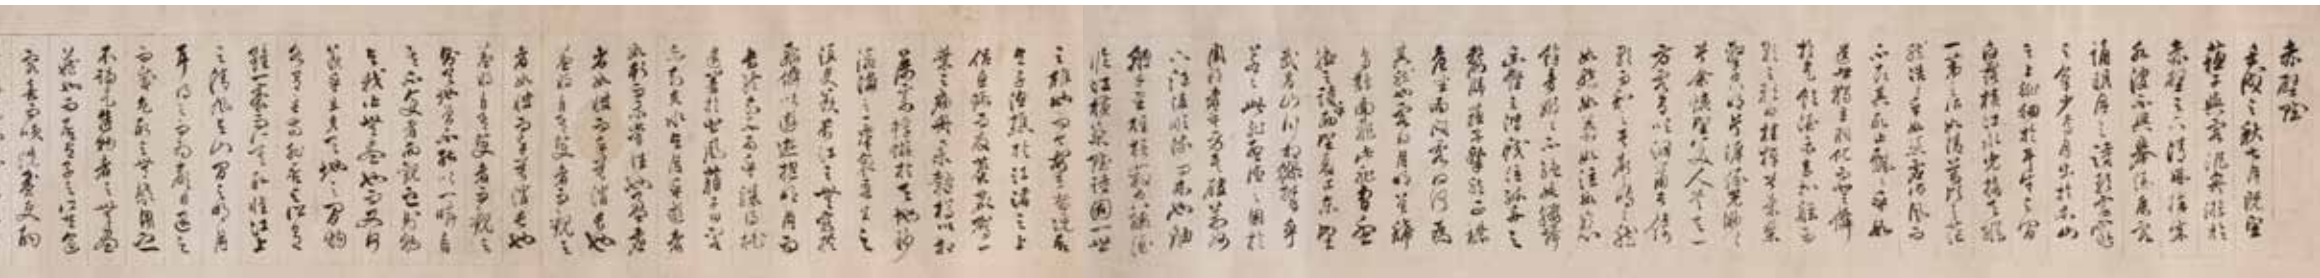 赤壁賦
壬戌之秋七月既望
蘇子與客泛舟遊於
赤壁之下清風徐來
水波不興舉酒屬客
誦明月之詩歌窈窕
之章少焉月出於東山
之上徘徊於斗牛之間
白露橫江水光接天縱
一葦之所如凌萬頃之茫
然浩乎如馮虛御風而
不知其所止飄飄乎如
遺世獨立羽化而登仙
於是飲酒樂甚扣舷而
歌之歌曰桂棹兮蘭槳
擊空明兮泝流光渺渺
兮余懷望美人兮天一
方客有吹洞簫者倚
歌而和之其聲嗚嗚然
如怨如慕如泣如訴
餘音嫋嫋不絕如縷舞
幽壑之潛蛟泣孤舟之
嫠婦蘇子愀然正襟
危坐而問客曰何為
其然也客曰月明星稀
烏鵲南飛此非曹孟
德之詩乎西望夏口東望
武昌山川相繆鬱乎
蒼蒼此非孟德之困於
周郎者乎方其破荊州
下江陵順流而東也舳
艫千里旌旗蔽空釃酒
臨江橫槊賦詩固一世
之雄也而今安在哉況吾
與子漁樵於江渚之上
侶魚蝦而友麋鹿駕一
葉之扁舟舉匏樽以相
屬寄蜉蝣於天地渺
滄海之一粟哀吾生之
須臾羨長江之無窮挾
飛仙以遨遊抱明月而
長終知不可乎驟得託
遺響於悲風蘇子曰客
亦知夫水與月乎逝者
如斯而未嘗往也盈虛者
如彼而卒莫消長也
蓋將自其變者而觀之
者如彼而卒莫消長也
蓋將自其變者而觀之
則天地曾不能以一瞬自
其不變者而觀之則物
與我皆無盡也而又何
羨乎且夫天地之間物
各有主苟非吾之所有
雖一毫而莫取惟江上
之清風與山間之明月
耳得之而為聲目遇之
而成色取之無禁用之
不竭是造物者之無盡
藏也而吾與子之所共食
客喜而笑洗盞更酌